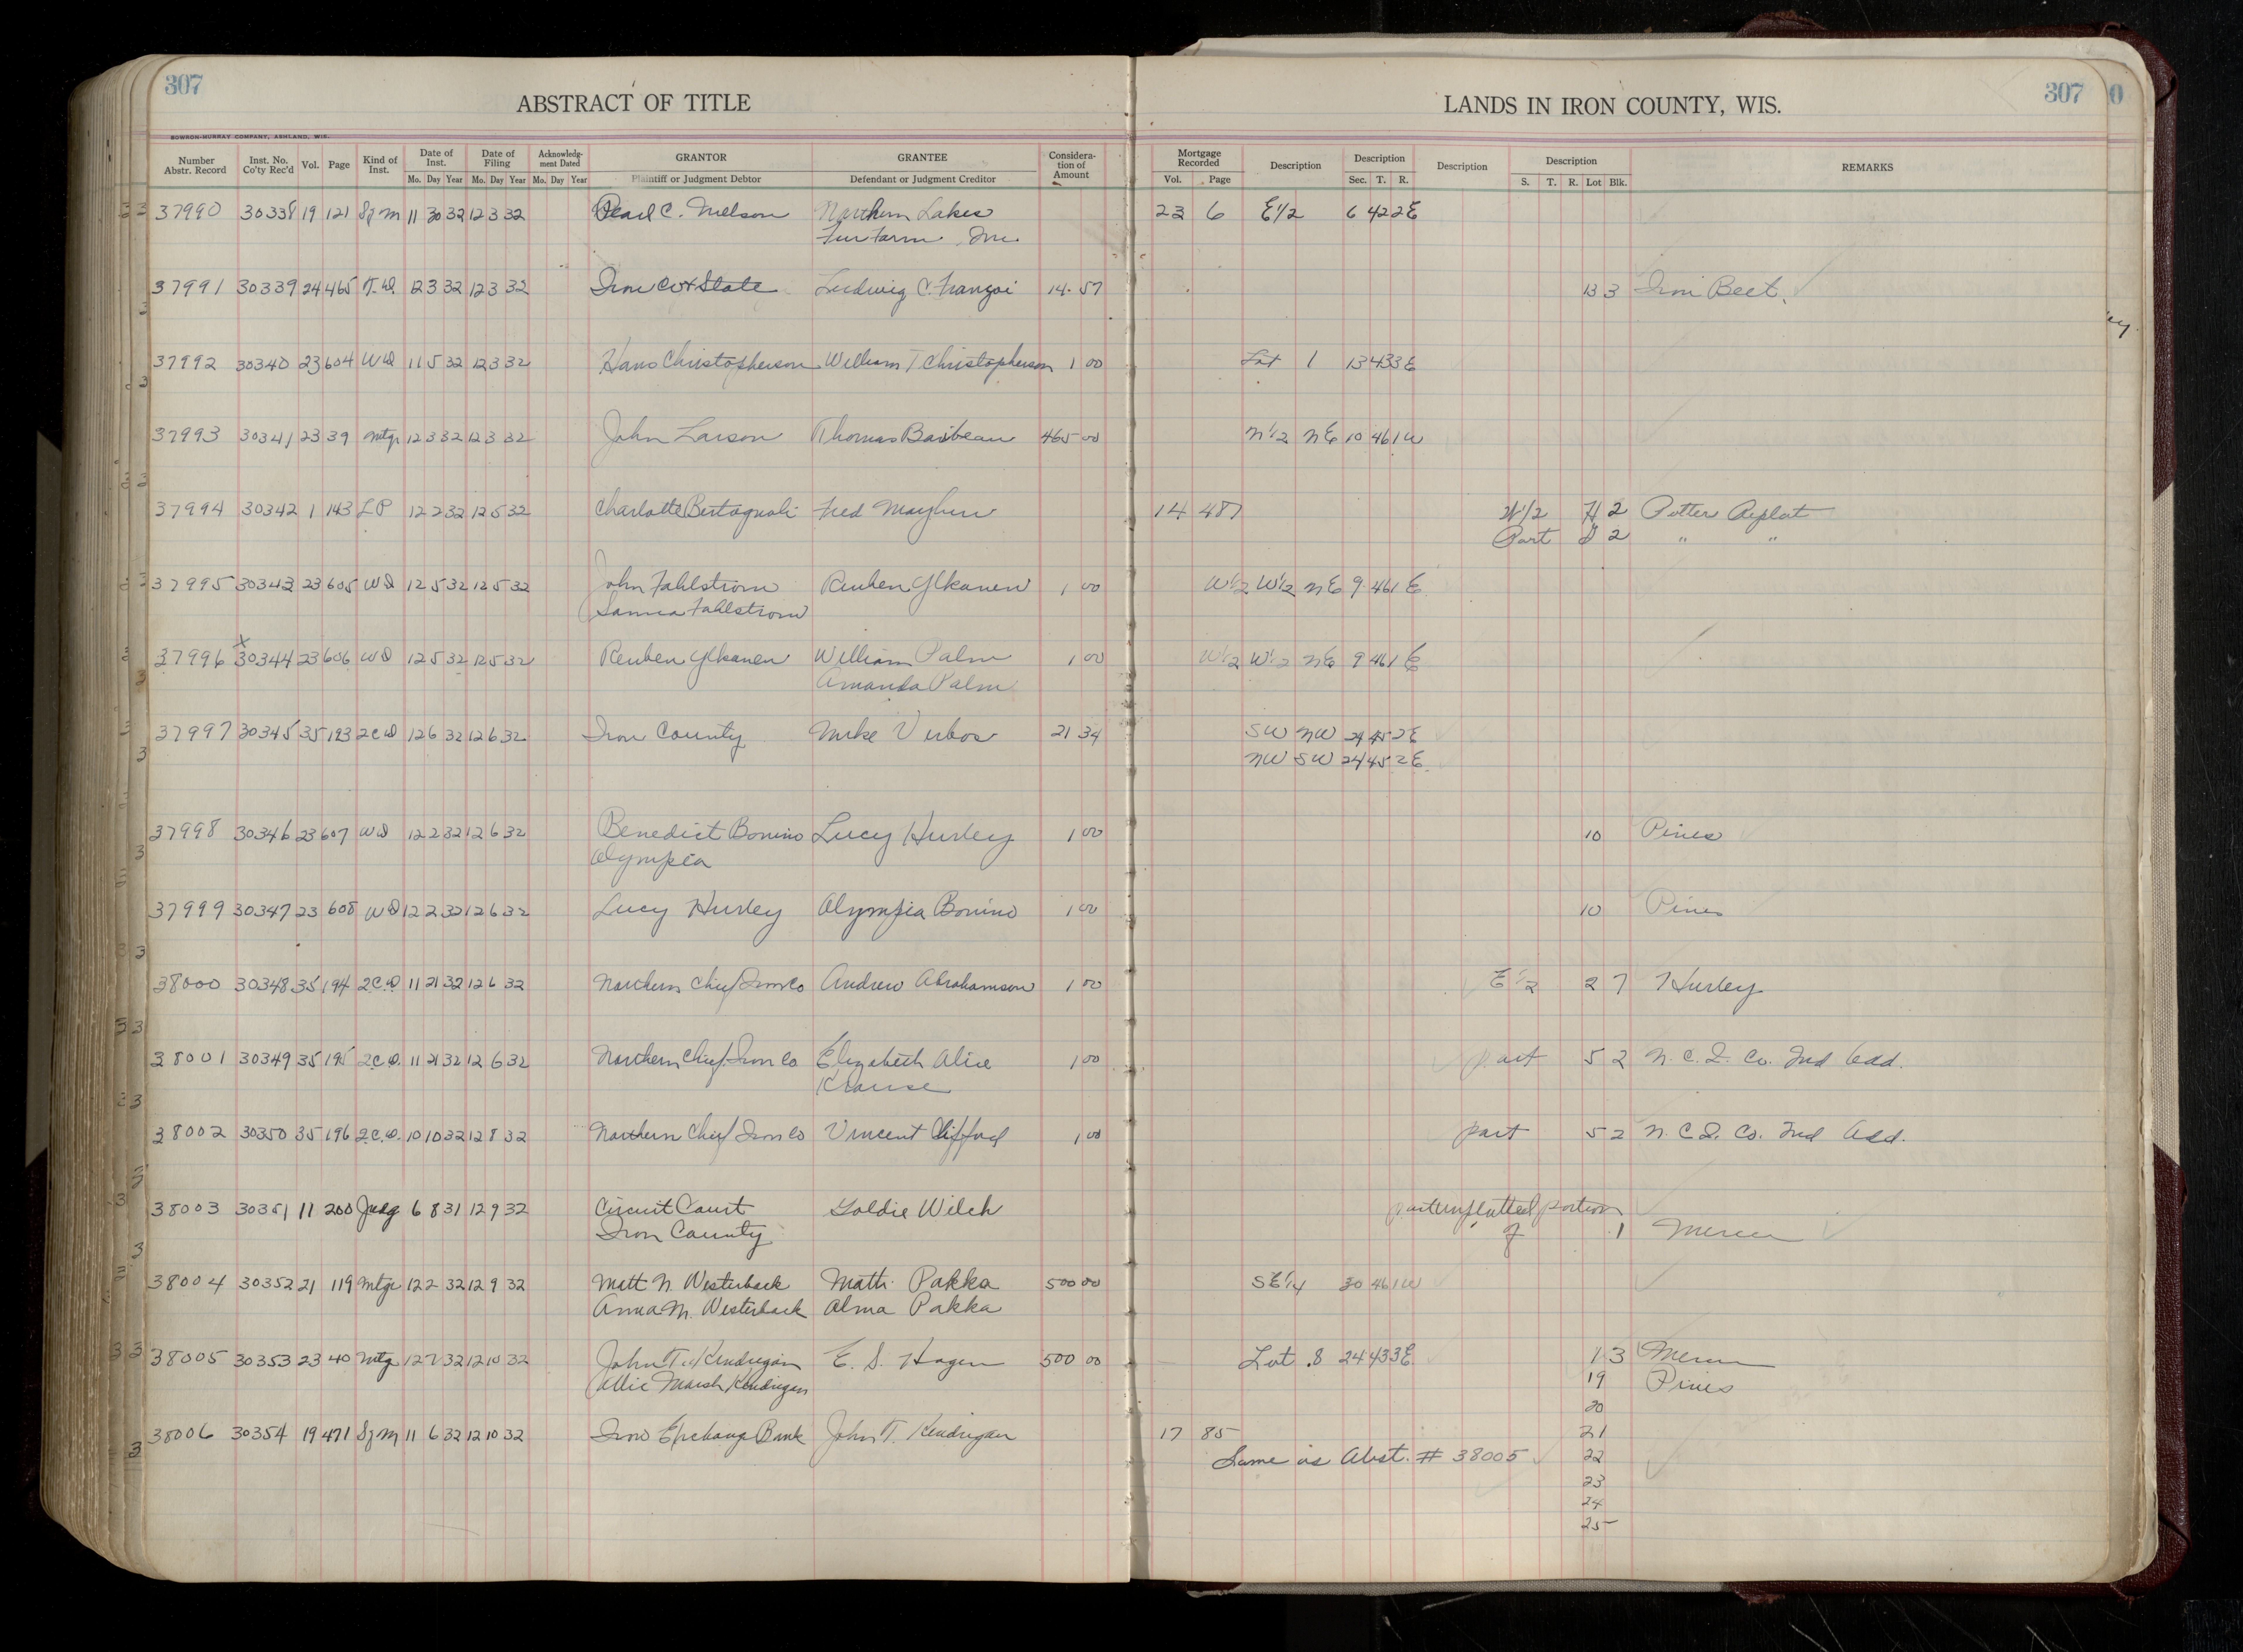 307
ABSTRACT OF TITLE
BOWRON-MURRAY COMPANY, ASHLAND, WIS.
LANDS IN IRON COUNTY, WIS.
307
0
Number Abstr. Record Inst. No. Co'ty Rec'd Vol. Page Kind of Inst. Date of Inst. Mo. Day Year Date of Filing Mo. Day Year Acknowledg-ment Dated Mo. Day Year GRANTOR Plaintiff or Judgment Debtor GRANTEE Defendant or Judgment Creditor Considera-tion of Amount Mortgage Recorded Vol. Page Description Description Sec. T. R. Description Description S. T. R. Lot Blk. REMARKS
37990 30338 19 121 Sg M 11 30 32 12 3 32 Pearl C. Melson Northern Lakes 23 6 E1/2 6 42 2E
Fur Farm, Inc.
37991 30339 24 465 T.D. 12 3 32 12 3 32 Iron Co & State Ludwig C. Franzoi 14.57 13 3 Iron Belt.
37992 30340 23 604 WD 11 5 32 12 3 32 Hans Christopherson William T Christopherson 1 00 Lot 1 13 43 3E
37993 30341 23 39 Mtg. 12 3 32 12 3 32 John Larson Thomas Baribeau 465 00 N1/2 NE 10 46 1W
37994 30342 1 143 LP 12 2 32 12 5 32 Charlotte Bertagnoli Fred Mayhew 14 487 W1/2 H 2 Potter Replat
Part 2 " "
37995 30343 23 605 WD 12 5 32 12 5 32 John Fahlstrom Reuben Ylkanen 1 00 W1/2 W1/2 NE 9 46 1E
Sanna Fahlstrom
x
37996 30344 23 606 WD 12 5 32 12 5 32 Reuben Ylkanen William Palm 1 00 W1/2 W1/2 NE 9 46 1E
Amanda Palm
37997 30345 35 193 2CD 12 6 32 12 6 32 Iron County Mike Verbos 21 34 SW NW 24 45 2E
NW SW 24 45 2E
37998 30346 23 607 WD 12 2 32 12 6 32 Benedict Bonino Lucy Hurley 1 00 10 Pines
Olympia
37999 30347 23 608 WD 12 2 32 12 6 32 Lucy Hurley Olympia Bonino 1 00 10 Pines
38000 30348 35 194 2.C.D 11 21 32 12 6 32 Northern Chief Iron Co Andrew Abrahamson 1 00 E 1/2 2 7 Hurley
38001 30349 35 195 2.C.D. 11 21 32 12 6 32 Northern Chief Iron Co Elizabeth Alice 1 00 part 5 2 N. C. I. Co. 2nd Add.
Krause
38002 30350 35 196 2.C.D. 10 10 32 12 8 32 Northern Chief Iron Co Vincent Clifford 1 00 part 5 2 N. C. I. Co. 2nd Add.
38003 30351 11 200 Judg 6 8 31 12 9 32 Circuit Court Goldie Welch part unplatted portion
Iron County of 1 Mercer
38004 30352 21 119 Mtge 12 2 32 12 9 32 Matt N. Westerback Matti Pakka 500 00 SE1/4 30 46 1W
Anna M. Westerback Alma Pakka
38005 30353 23 40 Mtg 12 7 32 12 10 32 John T. Kendrigan E. S. Hagen 500 00 Lot 8 24 43 3E 1 3 Mercer
Allie Marsh Kendrigan 19 Pines
20
38006 30354 19 471 Sg M 11 6 32 12 10 32 Iron Exchange Bank John T. Kendrigan 17 85 21
Same as Abst. # 38005 22
23
24
25